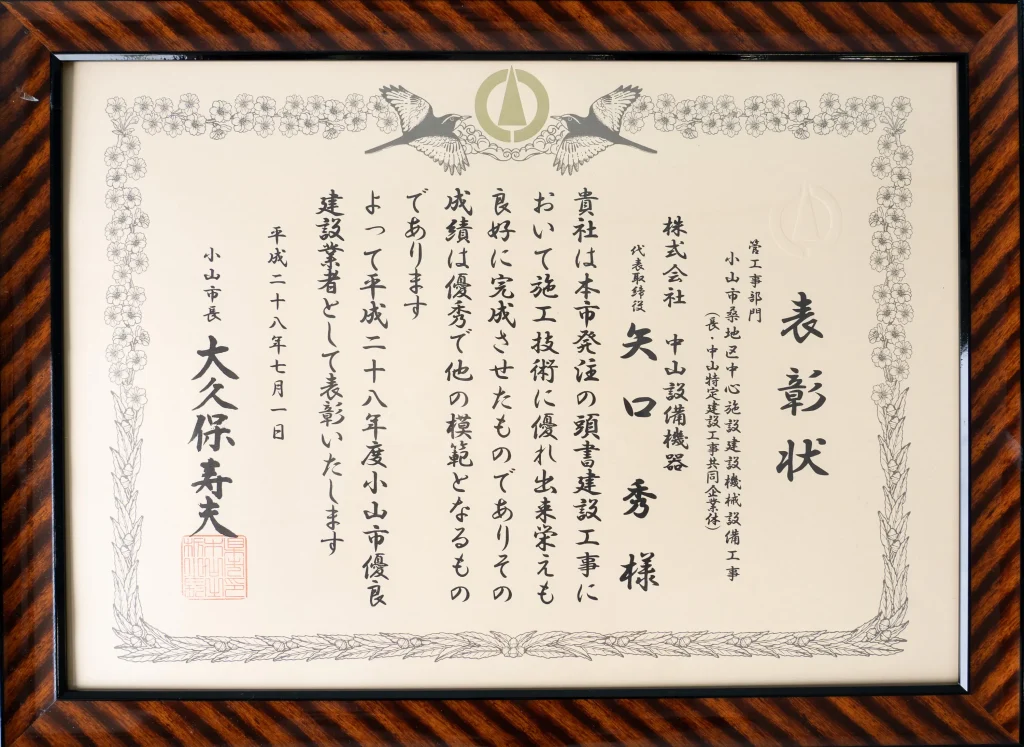 表彰状
管工事部門
小山市桑地区中心施設建設機械設備工事
(長・中山特定建設工事共同企業体)
株式会社 中山設備機器
代表取締役 矢口秀様
貴社は本市発注の頭書建設工事に
おいて施工技術に優れ出来栄えも
良好に完成させたものでありその
成績は優秀で他の模範となるもの
であります
よって平成二十八年度小山市優良
建設業者として表彰いたします
平成二十八年七月一日
小山市長 大久保寿夫